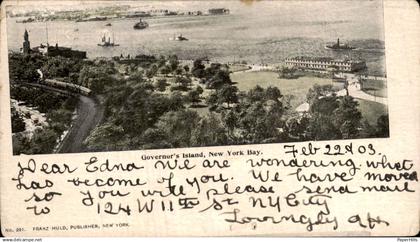 Governor's Island, New York Bay.
Feb 22nd 03.
Dear Edna We are wondering what
has become of you. We have moved
so if you write please send mail
to 124 W 11th St NY City
Lovingly
No. 291. FRANZ HULD, PUBLISHER, NEW YORK.